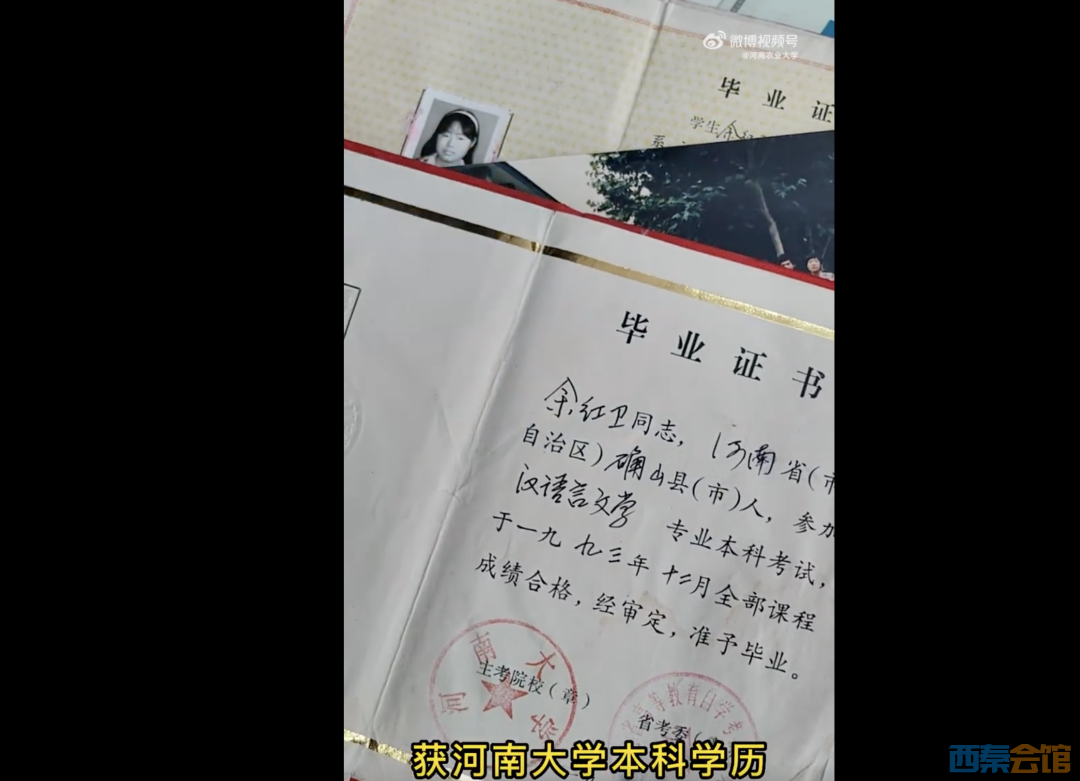 微博视频号
@河南农业大学
毕业证
学生余红
系
毕业证书
余红卫同志，河南省（市
自治区）确山县（市）人，参加
汉语言文学 专业本科考试，
于一九九三年十二月全部课程
成绩合格，经审定，准予毕业。
河南大学
主考院校（章）
高等教育自学考
省考委（
获河南大学本科学历
西秦会馆